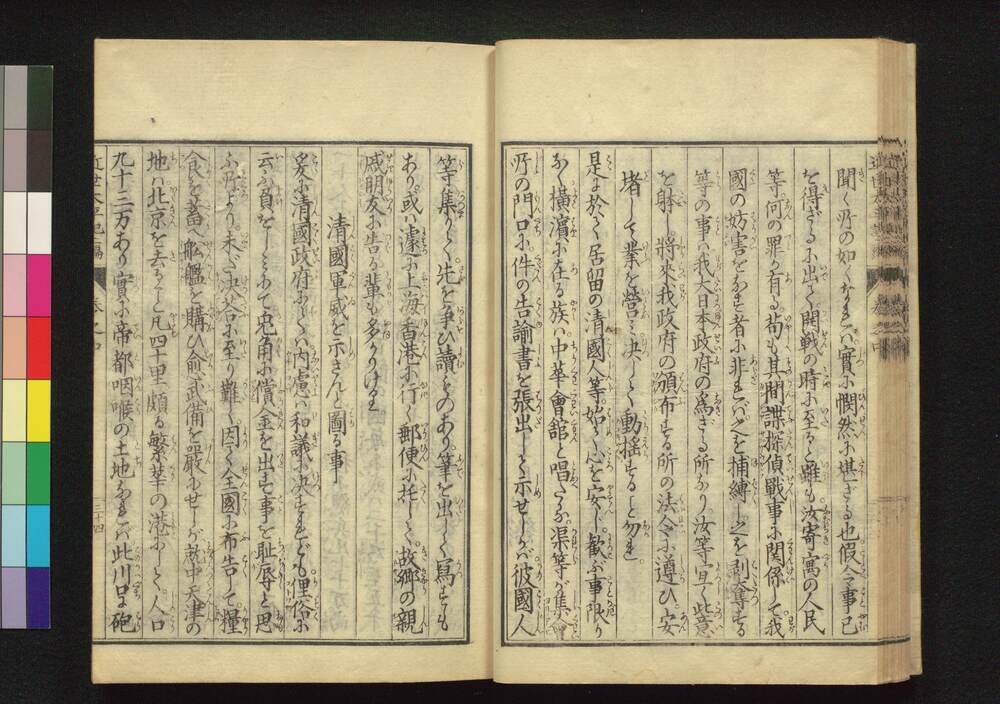 聞く所の如くなれバ實に憫然に堪ざる也假令事已
を得ざるに出て開戦の時に至ると雖も汝寄寓の人民
等何の罪か有る苟も其間諜探偵戦事に關係して我
國の妨害をなす者に非れバ之を捕縛し之を剥奪する
等の事ハ我大日本政府の爲ざる所なり汝等宜く此意
を躰し將來我政府の頒布する所の法令に遵ひ安
堵して業を營ミ决して動揺すること勿れ
是に於て居留の清國人等始て心を安じ歓ぶ事限り
なく横濱に在る族ハ中華會舘と唱へたるが渠等が集會
所の門口に件の告諭書を張出して示せしかバ彼國人
等集りて先を争ひ讀ものあり筆を出して寫すも
あり或ハ遽に上海香港に行く郵便に托して故郷の親
戚朋友に告る輩も多かりけり
清國軍威を示さんと圖る事
爰に清國政府にてハ内慮ハ和議に决すれども俚俗に
云ふ負をしミにて兎角に償金を出す事を耻辱と思
ふ所より未だ决答に至り難く因て全國に布告して糧
食を蓄へ舩艦を購ひ愈武備を嚴にせしが就中天津の
地ハ北京を去ること凡四十里頗る繁華の港にして人口
九十三万あり實に帝都咽喉の土地なれバ此川口に砲
近世太平記二編
巻之四
三十四